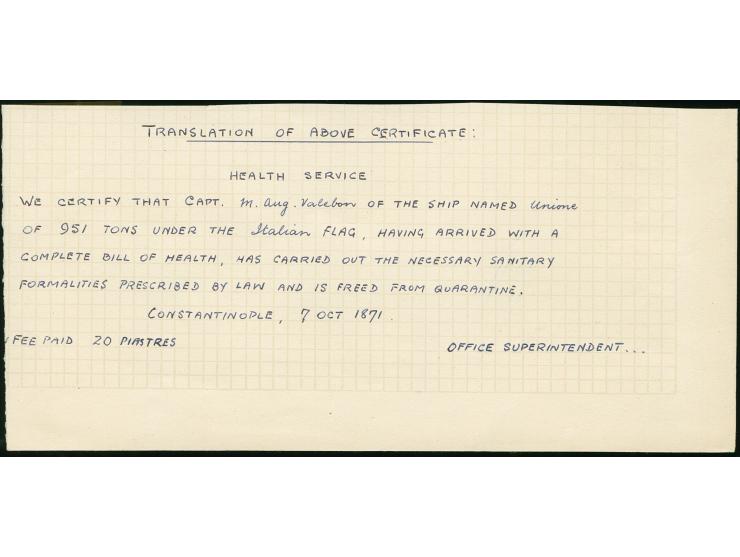 TRANSLATION OF ABOVE CERTIFICATE:
HEALTH SERVICE
WE CERTIFY THAT CAPT. M. Aug. Valebon OF THE SHIP NAMED Unione
OF 951 TONS UNDER THE Italian FLAG, HAVING ARRIVED WITH A
COMPLETE BILL OF HEALTH, HAS CARRIED OUT THE NECESSARY SANITARY
FORMALITIES PRESCRIBED BY LAW AND IS FREED FROM QUARANTINE.
CONSTANTINOPLE, 7 OCT 1871.
FEE PAID 20 PIASTRES
OFFICE SUPERINTENDENT...